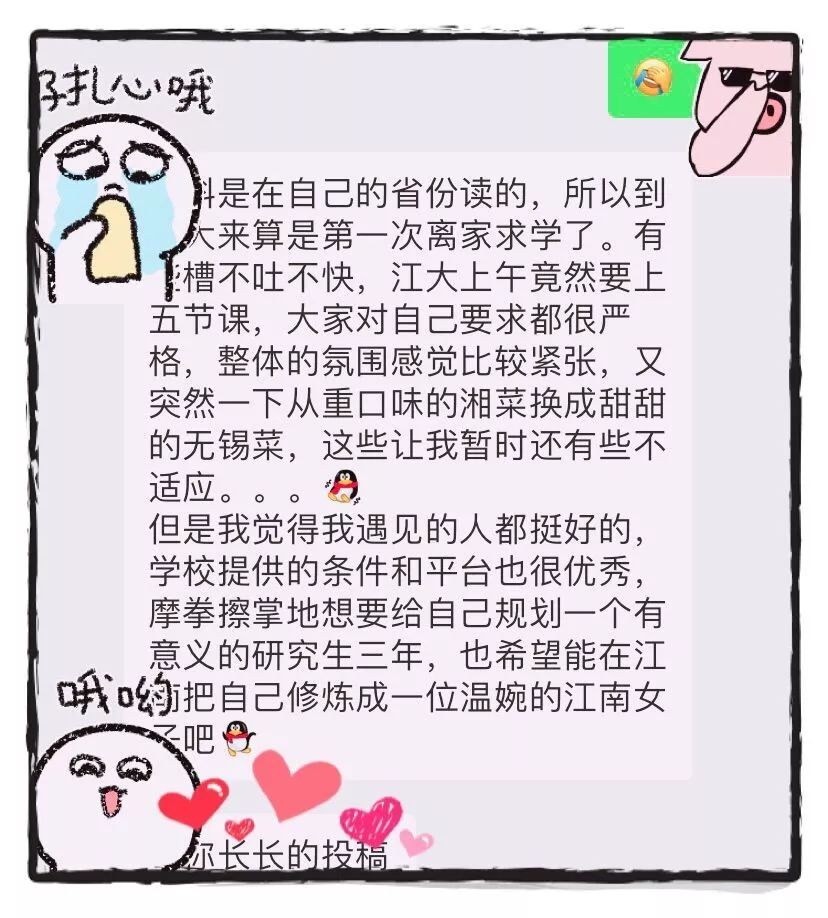 扎心哦
科是在自己的省份读的，所以到
大来算是第一次离家求学了。有
槽不吐不快，江大上午竟然要上
五节课，大家对自己要求都很严
格，整体的氛围感觉比较紧张，又
突然一下从重口味的湘菜换成甜甜
的无锡菜，这些让我暂时还有些不
适应。。。
但是我觉得我遇见的人都挺好的，
学校提供的条件和平台也很优秀，
摩拳擦掌地想要给自己规划一个有
意义的研究生三年，也希望能在江
南把自己修炼成一位温婉的江南女
子吧
哦哟
你长长的投稿